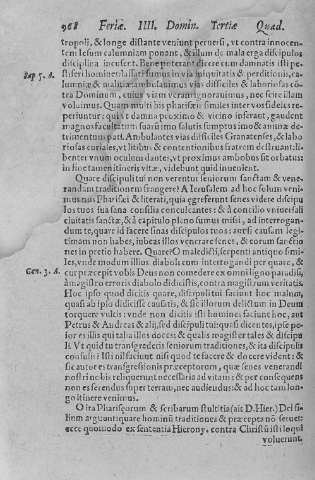 968 Feriæ IIII. Domin. Tertiæ Quad.
tropoli, & longe distante veniunt peruersi, vt contra innocen-
tem Iesum calumniam ponant, & illum de mala erga discipulos
disciplina incusent. Bene poterant dicere cum damnatis isti pe-
Sap 5. A.
stiferi homines: lassati sumus in via iniquitatis & perditionis, ca-
lumniæ & malitiæ ambulauimus vias difficiles & laboriosas cō-
tra Dominum, cuius viam veram ignorauimus, nec scire illam
volumus. Quam multi his pharisæis similes inter vos fideles re-
periuntur: qui vt damna proximo & vicino inferant, gaudent
magnos facultatum suarum & salutis sumptus imo & animæ de-
trimentum pati. Ambulantes vias difficiles Granatenses, & labo
riosas curiales, vt litibus & contentionibus fratrem destruant: li-
benter vnum oculum dantes, vt proximus ambobus sit orbatus:
in hoc tamen itineris vitæ, videbunt quid inuenient.
Quare discipuli tui non verentur seniorum sanctam & vene-
randam traditionem frangere? A Ierusalem ad hoc solum veni-
mus nos Pharisæi & literati, quia egre ferunt senes videre discipu
los tuos sua sana consilia conculcantes: & à concilio vniuersali
ciuitatis sanctæ, & à capitulo pleno sumus missi, ad interrogan-
dum te, quare id facere sinas discipulos tuos: aut si causam legi-
timam non habes, iubeas illos venerare senes, & eorum sanctio
nes in pretio habere. Quare O maledicti, serpenti antiquo simi-
les, vnde modum illius diabolicum interrogandi per quare, &
Gen. 3. A.
cur præcepit vobis Deus non comedere ex omni ligno paradisi,
à magistro erroris diabolo didicistis, contra magistrum veritatis.
Hoc ipso quod dicitis quare, discipuli tui faciunt hoc malum,
quasi ab ipso didicisse causatis, & scelus illorum delictum in Deum
torquere vultis: vnde non dicitis isti homines faciunt hoc, aut
Petrus & Andreas & alij, sed discipuli tui: quasi dicentes, ipse pe-
ior es illis qui talia illos doces: & qualis magister tales & discipu
li. Vt quid tu transgrederis seniorum traditiones, & ita discipulis
consulis? Isti nil faciunt nisi quod te facere & docere vident: &
sic autor es transgressionis præceptorum, quæ senes venerandi
nostri nobis reliquerunt necessaria ad vitam: & per consequens
non es ferendus super terram, nec audiendus: & ad hoc tam lon-
go itinere venimus.
O ita Pharisæorum & scribarum stultitia (ait D. Hier.) Dei fi-
lium arguunt: quare hominū traditiones & præcepta nō seruet:
ecce quomodo ex sententia Hierony. contra Christū isti loqui
voluerunt.